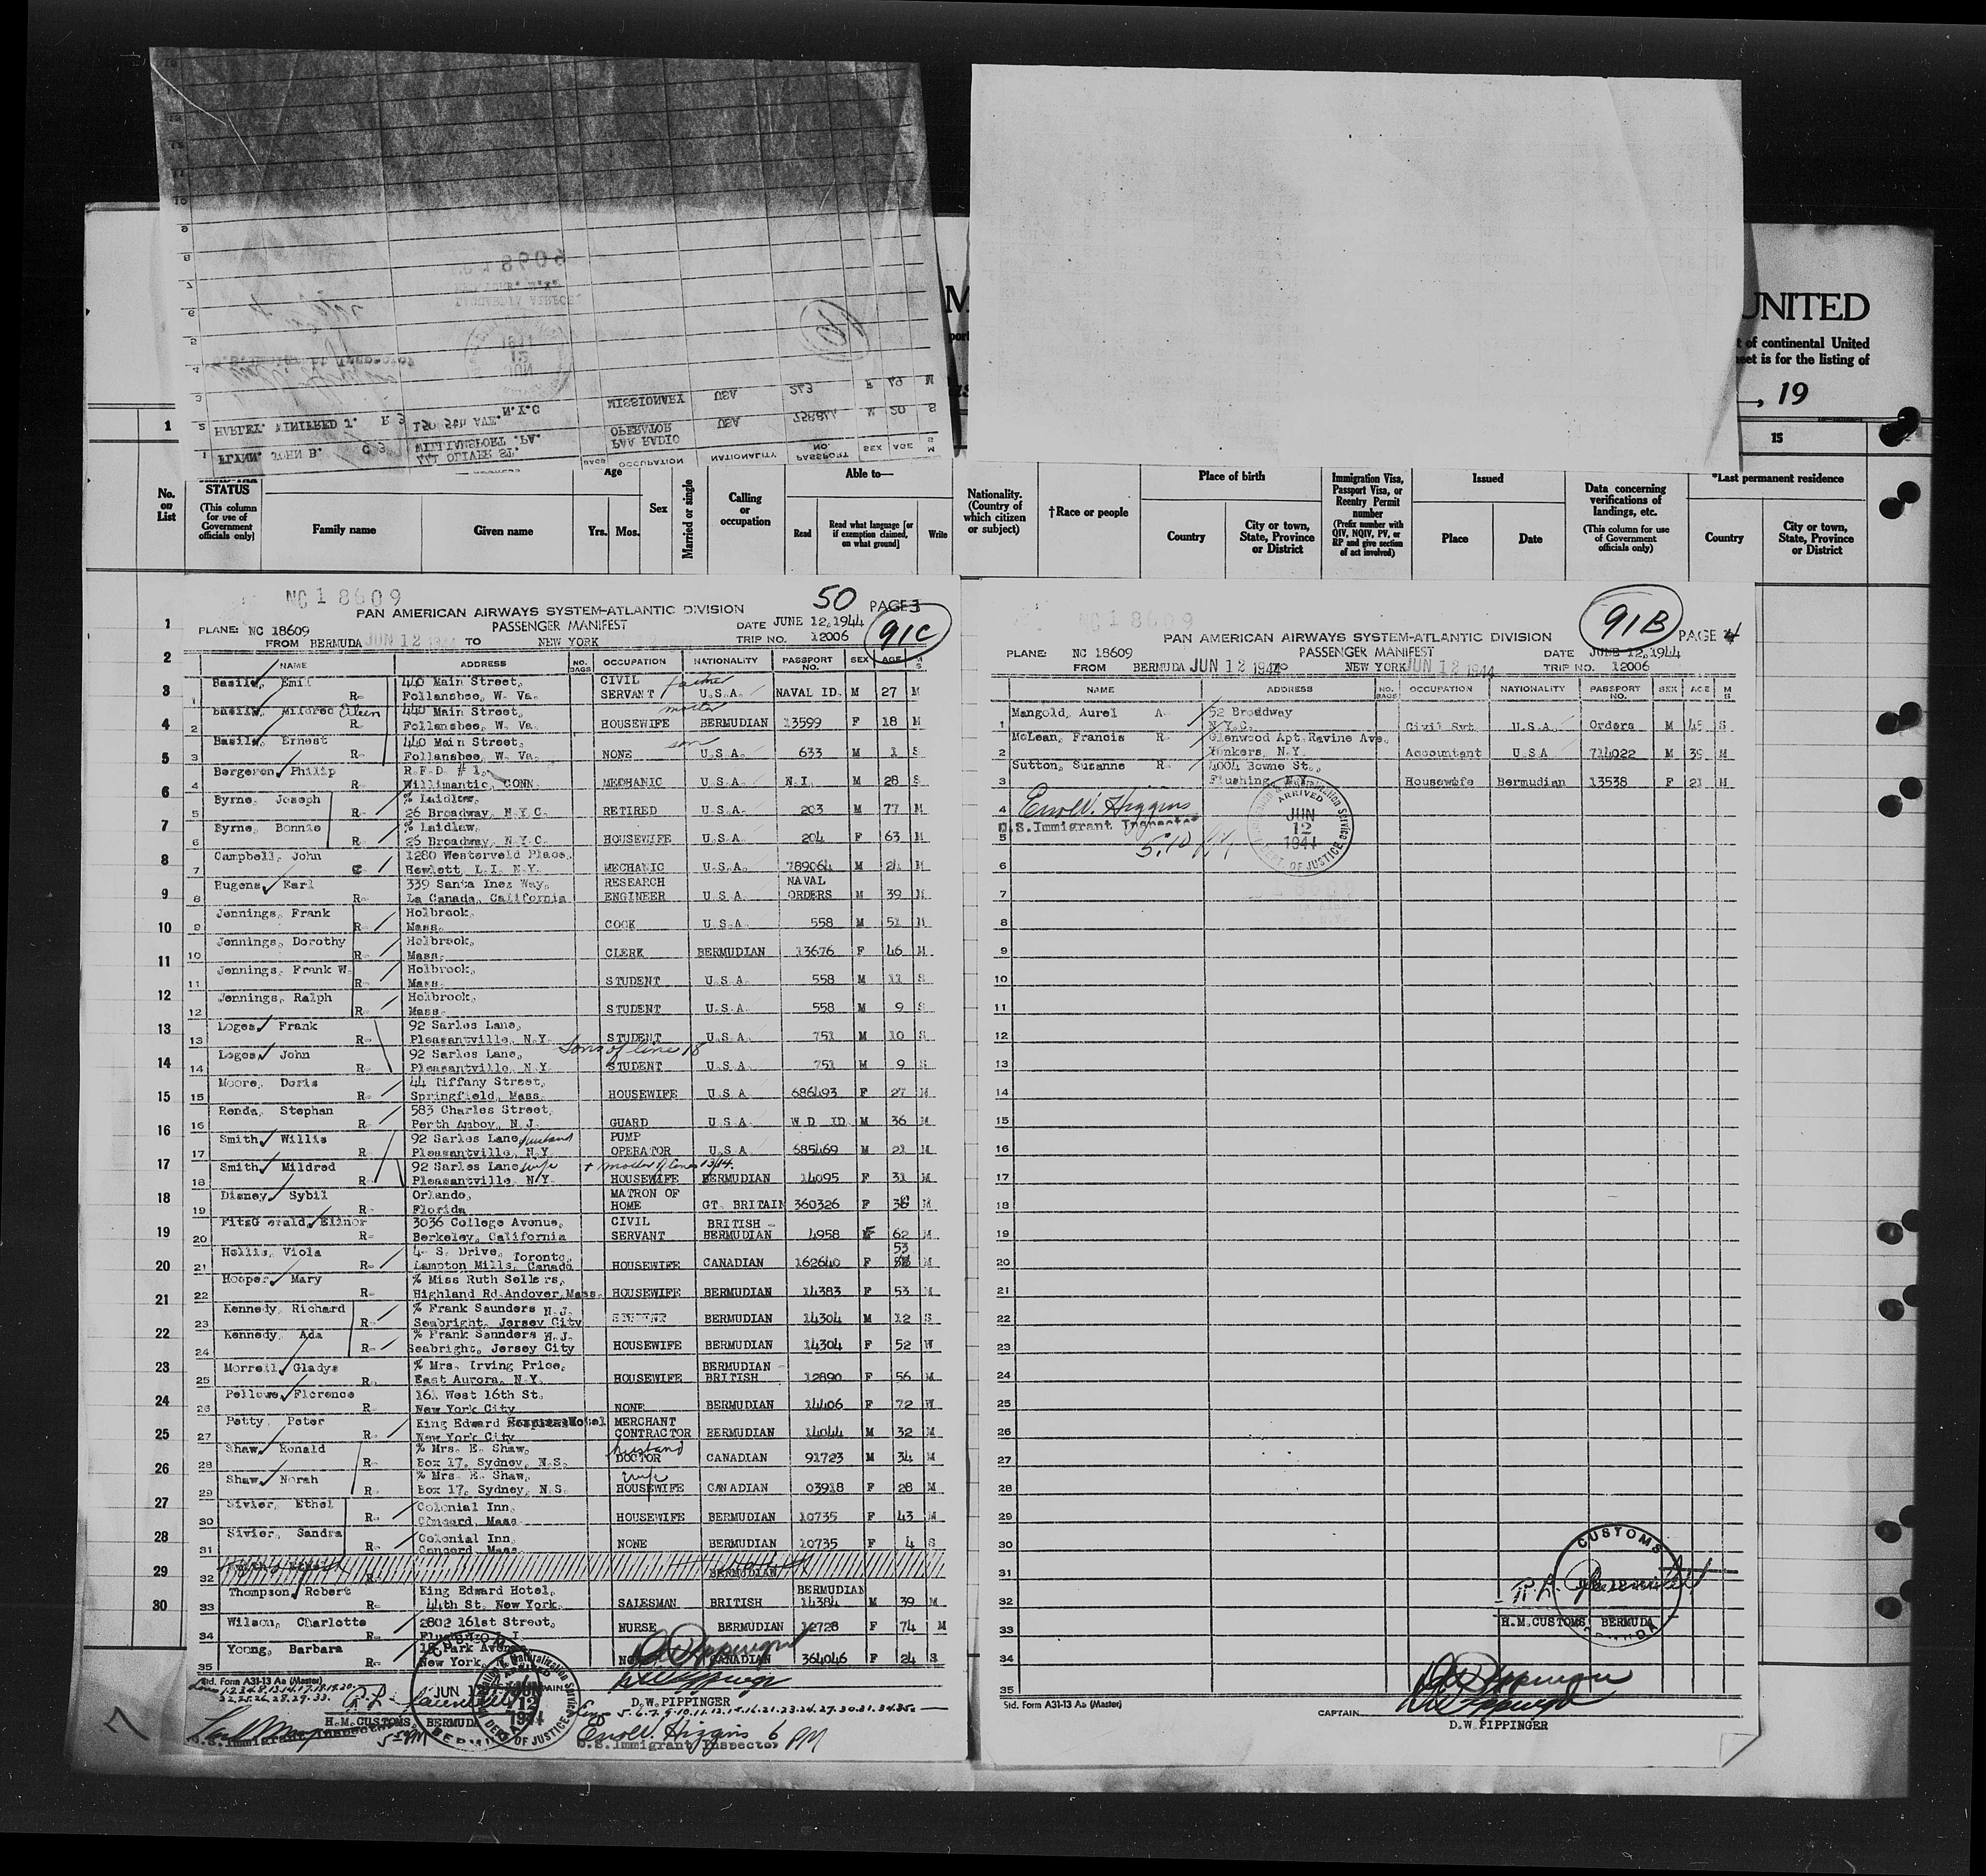 UNITED
of continental United
sheet is for the listing of
, 19
1
15
HARLEY. WINIFRED J. R 3 150 5th AVE. N.Y.C MISSIONARY USA 243 F 49 M
FLYNN. JOHN B. C 3 441 OLIVER ST. WILLIAMSPORT .PA. PAA RADIO OPERATOR USA M 20 S
ADDRESS BAGS OCCUPATION NATIONALITY PASSPORT NO. SEX AGE M S
No. on List
STATUS
(This column for use of Government officials only)
Family name
Given name
Age
Yrs.
Mos.
Sex
Married or single
Calling or occupation
Able to—
Read
Read what language [or if exemption claimed, on what ground]
Write
Nationality. (Country of which citizen or subject)
†Race or people
Place of birth
Country
City or town, State, Province or District
Immigration Visa, Passport Visa, or Reentry Permit number
(Prefix number with QIV, NQIV, PV, or RP and give section of act involved)
Issued
Place
Date
Data concerning verifications of landings, etc.
(This column for use of Government officials only)
*Last permanent residence
Country
City or town, State, Province or District
NC18609
50 PAGE 3
91C
PAN AMERICAN AIRWAYS SYSTEM-ATLANTIC DIVISION
PASSENGER MANIFEST
DATE JUNE 12, 1944
PLANE: NC 18609
FROM BERMUDA JUN 12 1944 TO NEW YORK
TRIP NO. 12006
NAME ADDRESS NO. BAGS OCCUPATION NATIONALITY PASSPORT NO. SEX AGE M S
1 Basile, Emil R- 440 Main Street, Follansbee, W. Va. CIVIL SERVANT father U.S.A. NAVAL ID. M 27 M
2 Basile, Mildred Eileen R- 440 Main Street, Follansbee, W. Va. HOUSEWIFE BERMUDIAN 13599 F 18 M
3 Basile, Ernest R- 440 Main Street, Follansbee, W. Va. NONE son U.S.A. 633 M 1 S
4 Bergeron, Philip R- R.F.D. #1, Willimantic, CONN. MECHANIC U.S.A. N.I. M 28 S
5 Byrne, Joseph R- % Laidlaw, 26 Broadway, N.Y.C. RETIRED U.S.A. 203 M 77 M
6 Byrne, Bonnie R- % Laidlaw, 26 Broadway, N.Y.C. HOUSEWIFE U.S.A. 204 F 63 M
7 Campbell, John C- 1280 Westerveld Place, Hewlett, L.I. N.Y. MECHANIC U.S.A. 789064 M 24 M
8 Rugens, Earl R- 339 Santa Inez Way, La Canada, California RESEARCH ENGINEER U.S.A. NAVAL ORDERS M 39 M
9 Jennings, Frank R- Holbrook, Mass. COOK U.S.A. 558 M 51 M
10 Jennings, Dorothy R- Holbrook, Mass. CLERK BERMUDIAN 13676 F 46 M
11 Jennings, Frank W. R- Holbrook, Mass. STUDENT U.S.A. 558 M 11 S
12 Jennings, Ralph R- Holbrook, Mass. STUDENT U.S.A. 558 M 9 S
13 Loges, Frank R- 92 Sarles Lane, Pleasantville, N.Y. STUDENT U.S.A. 751 M 10 S
Sons of line 18
14 Loges, John R- 92 Sarles Lane, Pleasantville, N.Y. STUDENT U.S.A. 751 M 9 S
15 Moore, Doris R- 44 Tiffany Street, Springfield, Mass. HOUSEWIFE U.S.A. 686493 F 27 M
16 Renda, Stephan R- 583 Charles Street, Perth Amboy, N.J. GUARD U.S.A. W D ID M 36 M
17 Smith, Willis R 92 Sarles Lane, husband Pleasantville, N.Y. PUMP OPERATOR U.S.A. 685469 M 21 M
18 Smith, Mildred R 92 Sarles Lane wife + mother of lines 13/14. Pleasantville, N.Y. HOUSEWIFE BERMUDIAN 14095 F 31 M
19 Disney, Sybil R- Orlando, Florida MATRON OF HOME GT. BRITAIN 360326 F 38 M
20 FitzGerald, Elinor R- 3036 College Avenue, Berkeley, California CIVIL SERVANT BRITISH - BERMUDIAN 4958 F 62 M
21 Hollis, Viola R- 4- S. Drive, Toronto, Lampton Mills, Canada HOUSEWIFE CANADIAN 162640 F 53 M
22 Hooper, Mary R- % Miss Ruth Sellers, Highland Rd. Andover, Mass. HOUSEWIFE BERMUDIAN 14383 F 53 M
23 Kennedy, Richard R- % Frank Saunders N.J. Seabright, Jersey City STUDENT BERMUDIAN 14304 M 12 S
24 Kennedy, Ada R- % Frank Saunders N.J. Seabright, Jersey City HOUSEWIFE BERMUDIAN 14304 F 52 W
25 Morrell, Gladys R- % Mrs. Irving Price, East Aurora, N.Y. HOUSEWIFE BERMUDIAN - BRITISH 12890 F 56 M
26 Pellowe, Florence R- 161 West 16th St. New York City NONE BERMUDIAN 14406 F 72 W
27 Petty, Peter R- King Edward Hotel New York City MERCHANT CONTRACTOR BERMUDIAN 14044 M 32 M
28 Shaw, Ronald R- % Mrs. E. Shaw, Box 17, Sydney, N.S. husband DOCTOR CANADIAN 91723 M 34 M
29 Shaw, Norah R- % Mrs. E. Shaw, Box 17, Sydney, N.S. wife HOUSEWIFE CANADIAN 03918 F 28 M
30 Sivier, Ethel R- Colonial Inn, Concord, Mass. HOUSEWIFE BERMUDIAN 10735 F 43 M
31 Sivier, Sandra R- Colonial Inn, Concord, Mass. NONE BERMUDIAN 10735 F 4 S
32 R- BERMUDIAN
33 Thompson, Robert R- King Edward Hotel, 44th St. New York. SALESMAN BRITISH BERMUDIAN 14384 M 39 M
34 Wilson, Charlotte R- 2802 161st Street, NURSE BERMUDIAN 12728 F 74 M
35 Young, Barbara R- 18 Park Avenue New York NONE CANADIAN 364046 F 24 S
Std. Form A31-13 Aa (Master)
D.W. PIPPINGER
H.M. CUSTOMS, BERMUDA
U.S. Immigrant Inspector
Lines 5.6.7.9.10.11.12.15.16.21.23.24.27.30.31.34.35.
Errol V. Higgins 6 PM
U.S. Immigrant Inspector
7
NC18609
91B PAGE 4
PAN AMERICAN AIRWAYS SYSTEM-ATLANTIC DIVISION
PASSENGER MANIFEST
DATE JUNE 12, 1944
PLANE: NC 18609
FROM BERMUDA JUN 12 1944 TO NEW YORK JUN 12 1944
TRIP NO. 12006
NAME ADDRESS NO. BAGS OCCUPATION NATIONALITY PASSPORT NO. SEX AGE M S
1 Mangold, Aurel A- 52 Broadway N.Y.C. Civil Svt. U.S.A. Orders M 45 S
2 McLean, Francis R- Glenwood Apt. Ravine Ave. Yonkers, N.Y. Accountant U.S.A 714022 M 39 M
3 Sutton, Suzanne R- 4004 Bowne St., Flushing, N.Y. Housewife Bermudian 13538 F 21 M
Errol V. Higgins
U.S. Immigrant Inspector
5:10 PM
Immigration & Naturalization Service
ARRIVED
JUN 12 1944
DEPT. OF JUSTICE
CUSTOMS
H.M. CUSTOMS, BERMUDA
Std. Form A31-13 Aa (Master)
CAPTAIN
D.W. PIPPINGER